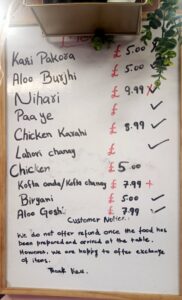 Kari Pakora £ 5.00
Aloo Burjhi £ 5.00 ✓
Nihari £ 9.99 ✗
Paaye ✓
Chicken Karahi £ 8.99 ✓
Lahori chanay ✓
Chicken £ 5.00
Kofta anda/Kofta chanay £ 7.99 +
Biryani £ 5.00 ✓
Aloo Gosht £ 7.99 ✓
Customer Notice:
We do not offer refund once the food has
been prepared and arrived at the table.
However, we are happy to offer exchange
of items.
Thank You.